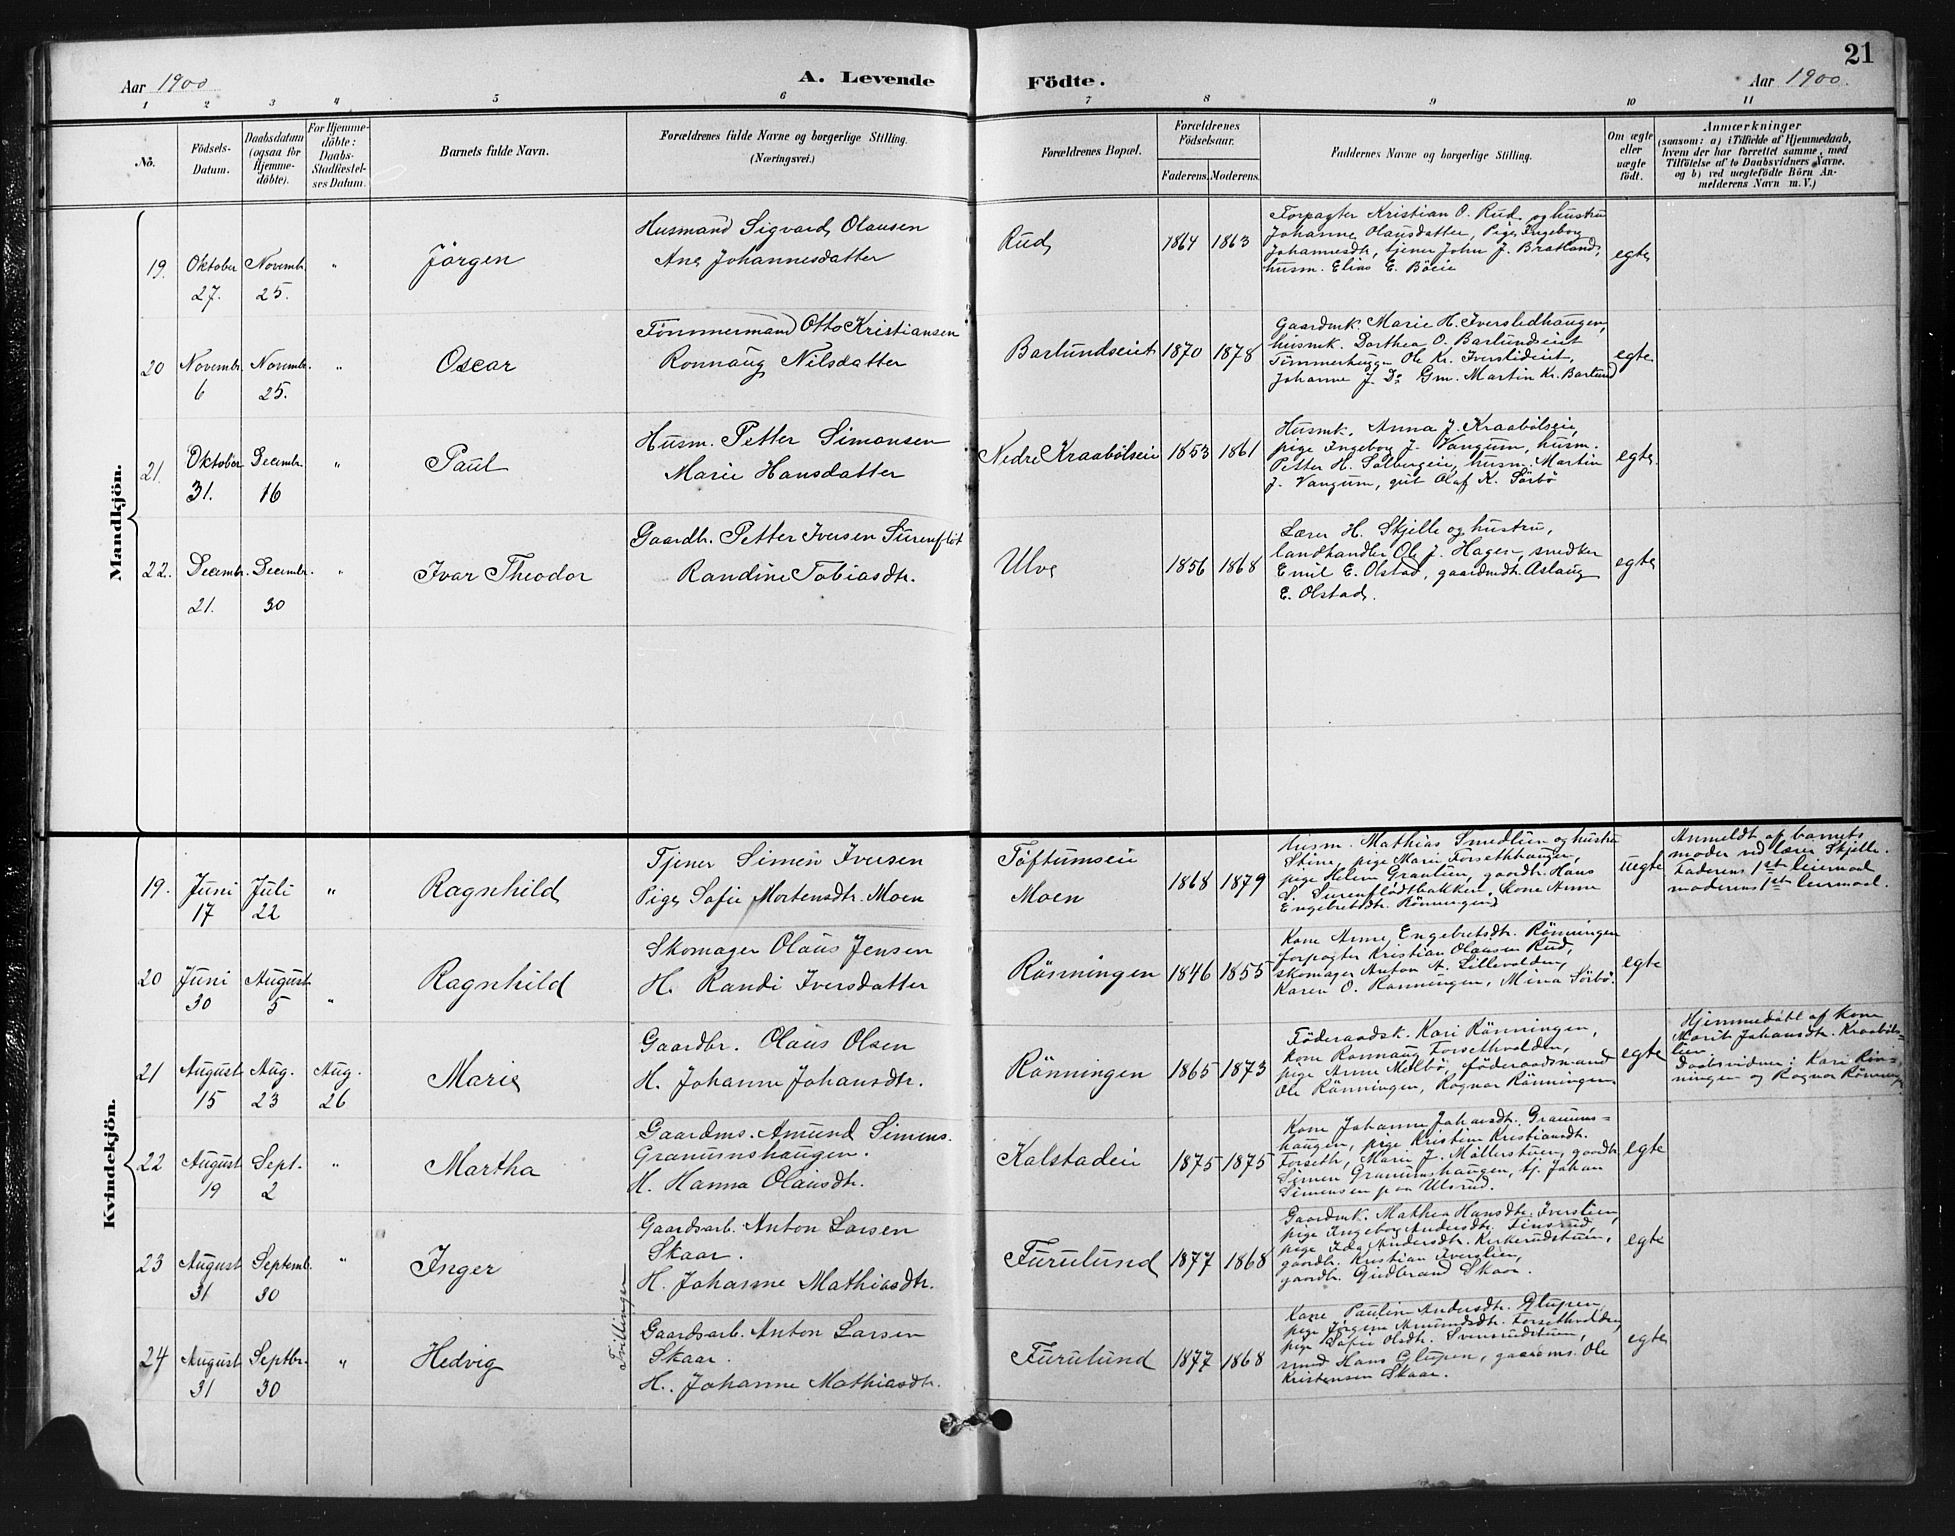 21
Aar 1900
A. Levende
Födte.
Aar 1900.
1 2 3 4 5 6 7 8 9 10 11
No.
Födsels-
Datum.
Daabsdatum
(ogsaa for
Hjemme-
döbte).
For Hjemme-
döbte:
Daabs-
Stadfæstel-
ses Datum.
Barnets fulde Navn.
Forældrenes fulde Navne og borgerlige Stilling.
(Næringsvei.)
Forældrenes Bopæl.
Forældrenes
Födselsaar.
Faderens. Moderens.
Faddernes Navne og borgerlige Stilling.
Om ægte
eller
uægte
födt.
Anmærkninger
(saasom: a) i Tilfælde af Hjemmedaab,
hvem der har forrettet samme, med
Tilföielse af to Daabsvidners Navne.
og b) ved uægtefödte Börn An-
melderens Navn m. V.)
Mandkjön.
19. Oktober 27. Novembr. 25. " Jörgen
Husmand Sigvard Olausen
Ane Johannesdatter
Rud 1864 1863
Forpagter Kristian O. Rud og hustru
Johanne Olausdatter, Pige Ingeborg
Johannesdtr, tjener John J. Bratland,
husm. Elias E. Böeie
egte
20 Novembr. 6 Novembr. 25. " Oscar
Tömmermand Otto Kristiansen
Ronnaug Nilsdatter
Barlundseiet 1870 1878
Gaardmk. Marie H. Iverslidhaugen,
husmk. Dorthea O. Barlundseiet
Tömmerhugger Ole Kr. Iverslieiet,
Johanne J. Do Gm. Martin Kr. Barlund
egte
21. Oktober 31. Decembr. 16 " Paul
Husm. Petter Simonsen
Marie Hansdatter
Nedre Kraabölseie 1853 1861
Husmk. Anna J. Kraabölseie,
pige Ingeborg J. Vangum, husm.
Petter H. Solbergeie, husm. Martin
J. Vangum, gut Olaf K. Sörbö
egte.
22. Decembr. 21. Decembr. 30 " Ivar Theodor
Gaardbr. Petter Iversen Surenflöt
Randine Tobiasdtr.
Ulve 1856 1868
Lærer H. Skjelle og hustru,
landhandler Ole J. Hagen, snedker
Emil E. Olstad, gaardmdtr. Aslaug
E. Olstad.
egte
Kvindekjön.
19. Juni 17 Juli 22 " Ragnhild
Tjener Simen Iversen
Pige Sofie Mortensdtr. Moen
Töftumseie
Moen
1868 1879
husm. Mathias Smedlien og hustru
Stine, pige Marie Forsethhaugen,
pige Helene Granlien, gaardbr. Hans
S. Surenflödtbakken, Kone Anne
Engebretsdtr. Rönningen
uegte
Anmeldt af barnets
moder ved lærer Skjelle.
Faderens 1ste leiermaal
moderens 1ste leiermaal.
20 Juni 30 August 5 " Ragnhild
Skomager Olaus Jensen
H. Randi Iversdatter
Rönningen 1846 1855
Kone Anne Engebretsdtr. Rönningen
forpagter Kristian Olausen Rud,
skomager Anton A. Lillevolden,
Karen O. Rönningen, Mina Sörbö.
egte
21 August 15 Aug. 23 Aug. 26 Marie
Gaardbr. Olaus Olsen
H. Johanne Johansdtr.
Rönningen 1865 1873
Föderaadsk. Kari Rönningen,
kone Ronnaug Forsethvolden,
pige Anne Melbö, föderaadsmand
Ole Rönningen, Ragnar Rönningen
egte
Hjemmedöbt af kone
Marit Johansdtr. Kraaböls-
lien
Daabsvidner: Kari Rön-
ningen og Ragnar Rönningen
22 August 19 Sept. 2 " Martha
Gaardms. Amund Simens.
Granumshaugen.
H. Hanna Olausdtr.
Kalstadeie 1875 1875
Kone Johanne Johansdtr. Granums-
haugen, pige Kristine Kristiansdtr.
Forseth, Marie J. Möllerstuen, gaardbr.
Simen Granumshaugen, tj. Johan
Simensen paa Ulsrud.
egte
23 August 31 Septemb. 30 " Inger
Gaardsarb. Anton Larsen
Skaar.
H. Johanne Mathiasdtr.
Tvillinger
Furulund 1877 1868
Gaardmk. Mathea Hansdtr. Iverslien,
pige Ingeborg Andersdtr. Finsrud,
pige Ida Andersdtr. Kirkerudstuen,
gaardbr. Kristian Iverslien,
gaardbr. Gudbrand Skaar.
egte
24 August 31 Septbr. 30 " Hedvig
Gaardsarb. Anton Larsen
Skaar.
H. Johanne Mathiasdtr.
Furulund 1877 1868
Kone Pauline Andersdtr. Glupen,
pige Jörgine Amundsdtr. Forsethvolden,
pige Sofie Olsdtr. Svensrudstuen,
smed Hans Glupen, gaardms. Ole
Kristensen Skaar.
egte